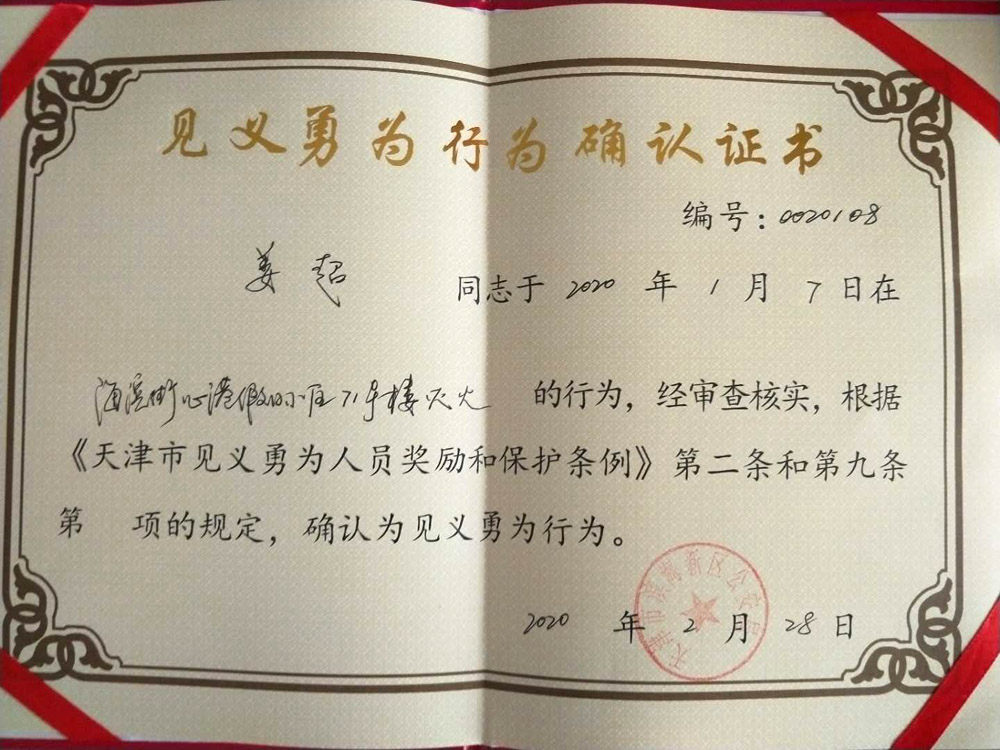 见义勇为行为确认证书
编号：0020108
姜超 同志于 2020 年 1 月 7 日在
海滨街心港假日小区71号楼灭火 的行为，经审查核实，根据
《天津市见义勇为人员奖励和保护条例》第二条和第九条
第 项的规定，确认为见义勇为行为。
天津市滨海新区公安局
2020 年 2 月 28 日